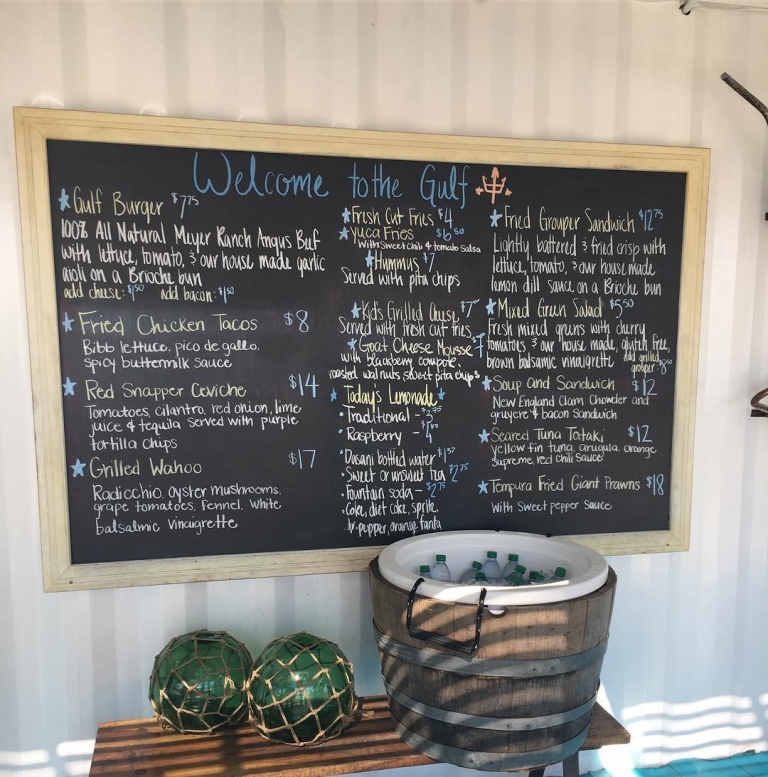 Welcome to the Gulf
Gulf Burger $7.75
100% All Natural Meyer Ranch Angus Beef
with lettuce, tomato, & our house made garlic
aioli on a Brioche bun
add cheese: $1.50 add bacon: $1.50
Fried Chicken Tacos $8
Bibb lettuce, pico de gallo,
spicy buttermilk sauce
Red Snapper Ceviche $14
Tomatoes, cilantro, red onion, lime
juice & tequila served with purple
tortilla chips
Grilled Wahoo $17
Radicchio, oyster mushrooms,
grape tomatoes, fennel, white
balsalmic vinaigrette
Fresh Cut Fries $4
Yuca Fries $6.50
With Sweet Chili & tomato salsa
Hummus $7
Served with pita chips
Kids Grilled Cheese $7
Served with fresh cut fries
Goat Cheese Mousse $7
with blackberry compote,
roasted walnuts, sweet pita chips
Today's Lemonade
Traditional -
Raspberry - 4
Dasani bottled water
Sweet or unsweet tea $2.75
Fountain soda - $2.75
Coke, diet coke, sprite,
dr. pepper, orange fanta
Fried Grouper Sandwich $12.75
Lightly battered & fried crisp with
lettuce, tomato, & our house made
lemon dill sauce on a Brioche bun
Mixed Green Salad $5.50
Fresh mixed greens with cherry
tomatoes & our house made, gluten free,
brown balsamic vinaigrette add grilled
grouper
Soup and Sandwich $12
New England Clam Chowder and
gruyere & bacon Sandwich
Seared Tuna Tataki $12
yellow fin tuna, arugula, orange
supreme, red chili sauce
Tempura Fried Giant Prawns $18
with Sweet pepper Sauce